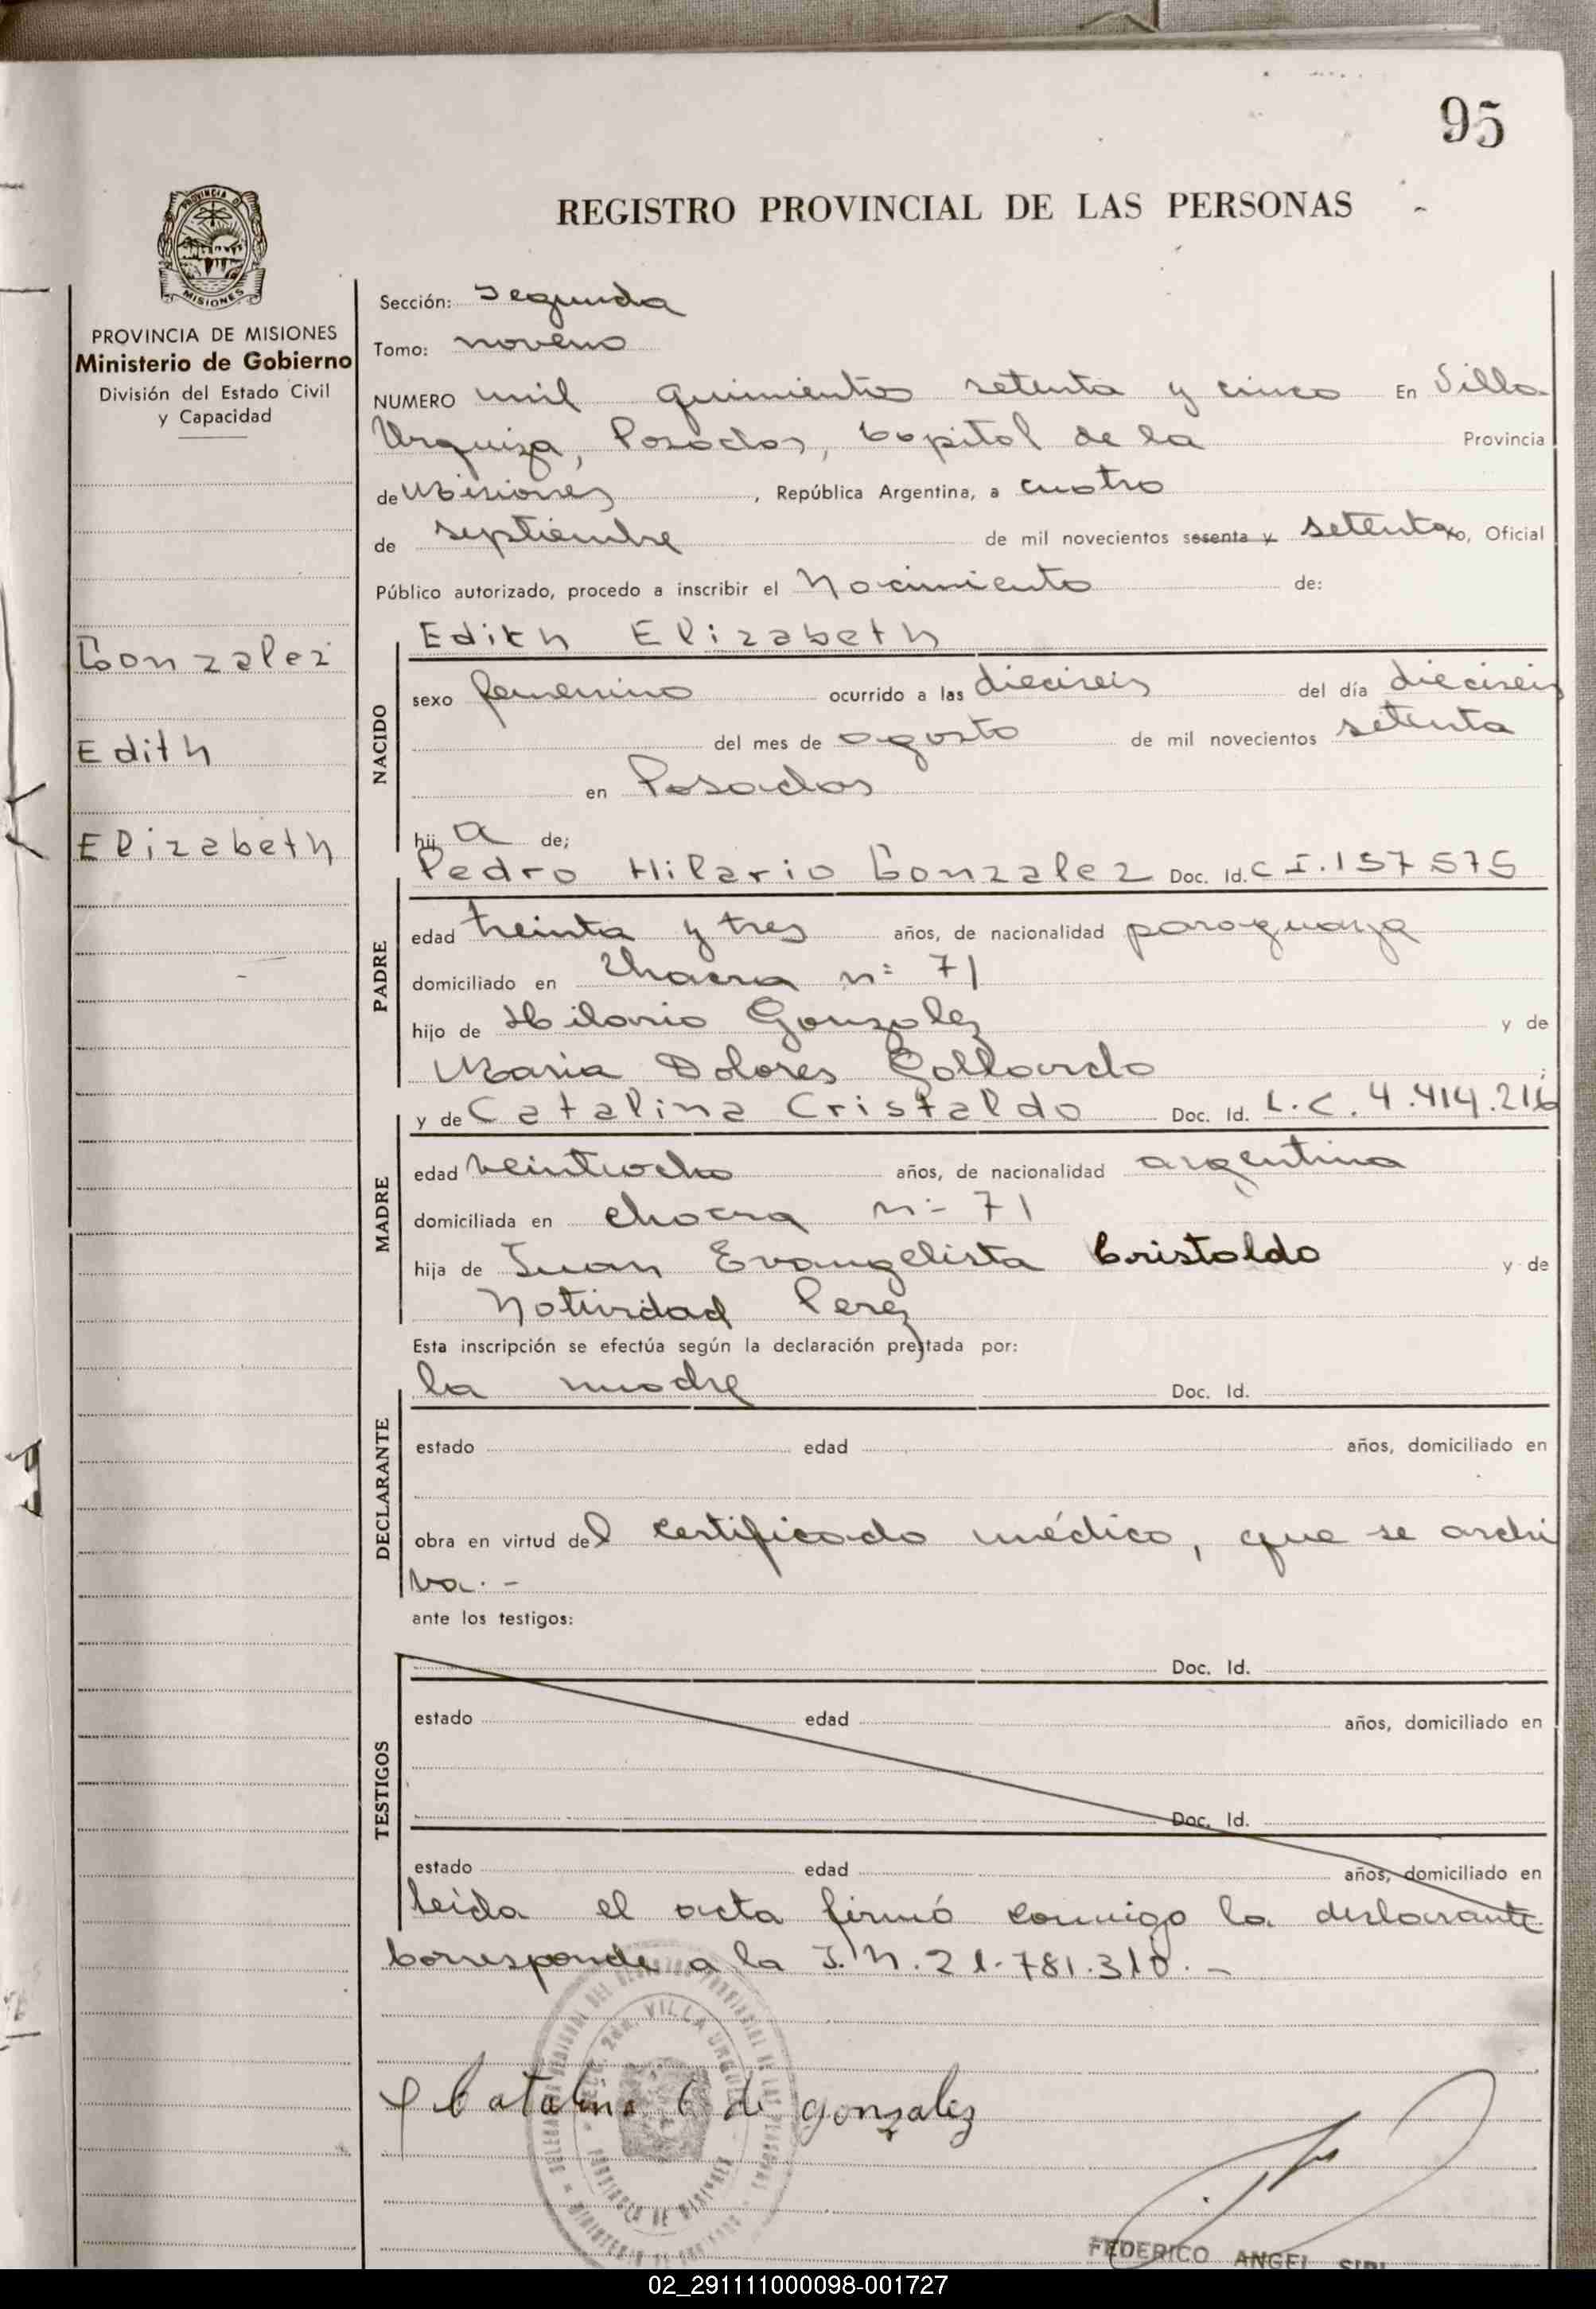 95
REGISTRO PROVINCIAL DE LAS PERSONAS
PROVINCIA DE
MISIONES
PROVINCIA DE MISIONES
Ministerio de Gobierno
División del Estado Civil
y Capacidad
Gonzalez
Edith
Elizabeth
Sección: Segunda
Tomo: noveno
NUMERO mil quinientos setenta y cinco En Villa
Urquiza, Posadas, Capital de la Provincia
de Misiones, República Argentina, a cuatro
de septiembre de mil novecientos sesenta y setenta yo, Oficial
Público autorizado, procedo a inscribir el Nacimiento de:
Edith Elizabeth
NACIDO
sexo femenino ocurrido a las dieciseis del día dieciseis
del mes de agosto de mil novecientos setenta
en Posadas
hij a de;
Pedro Hilario Gonzalez Doc. Id. C I. 157 575
PADRE
edad treinta y tres años, de nacionalidad paraguaya
domiciliado en Chacra nº 71
hijo de Hilario Gonzalez y de
Maria Dolores Gallardo ;
y de Catalina Cristaldo Doc. Id. L.C. 4.414.216
MADRE
edad veintiocho años, de nacionalidad argentina
domiciliada en chacra nº 71
hija de Juan Evangelista Cristaldo y de
Natividad Perez
Esta inscripción se efectúa según la declaración prestada por:
la madre Doc. Id.
DECLARANTE
estado edad años, domiciliado en
obra en virtud del certificado médico, que se archi
va. -
ante los testigos:
Doc. Id.
TESTIGOS
estado edad años, domiciliado en
Doc. Id.
estado edad años, domiciliado en
leida el acta firmó conmigo la declarante
Corresponde a la I.N. 21.781.310. -
VILLA URQUIZA
PROVINCIA DE MISIONES
Catalina C de gonzalez
FEDERICO ANGEL
02_291111000098-001727